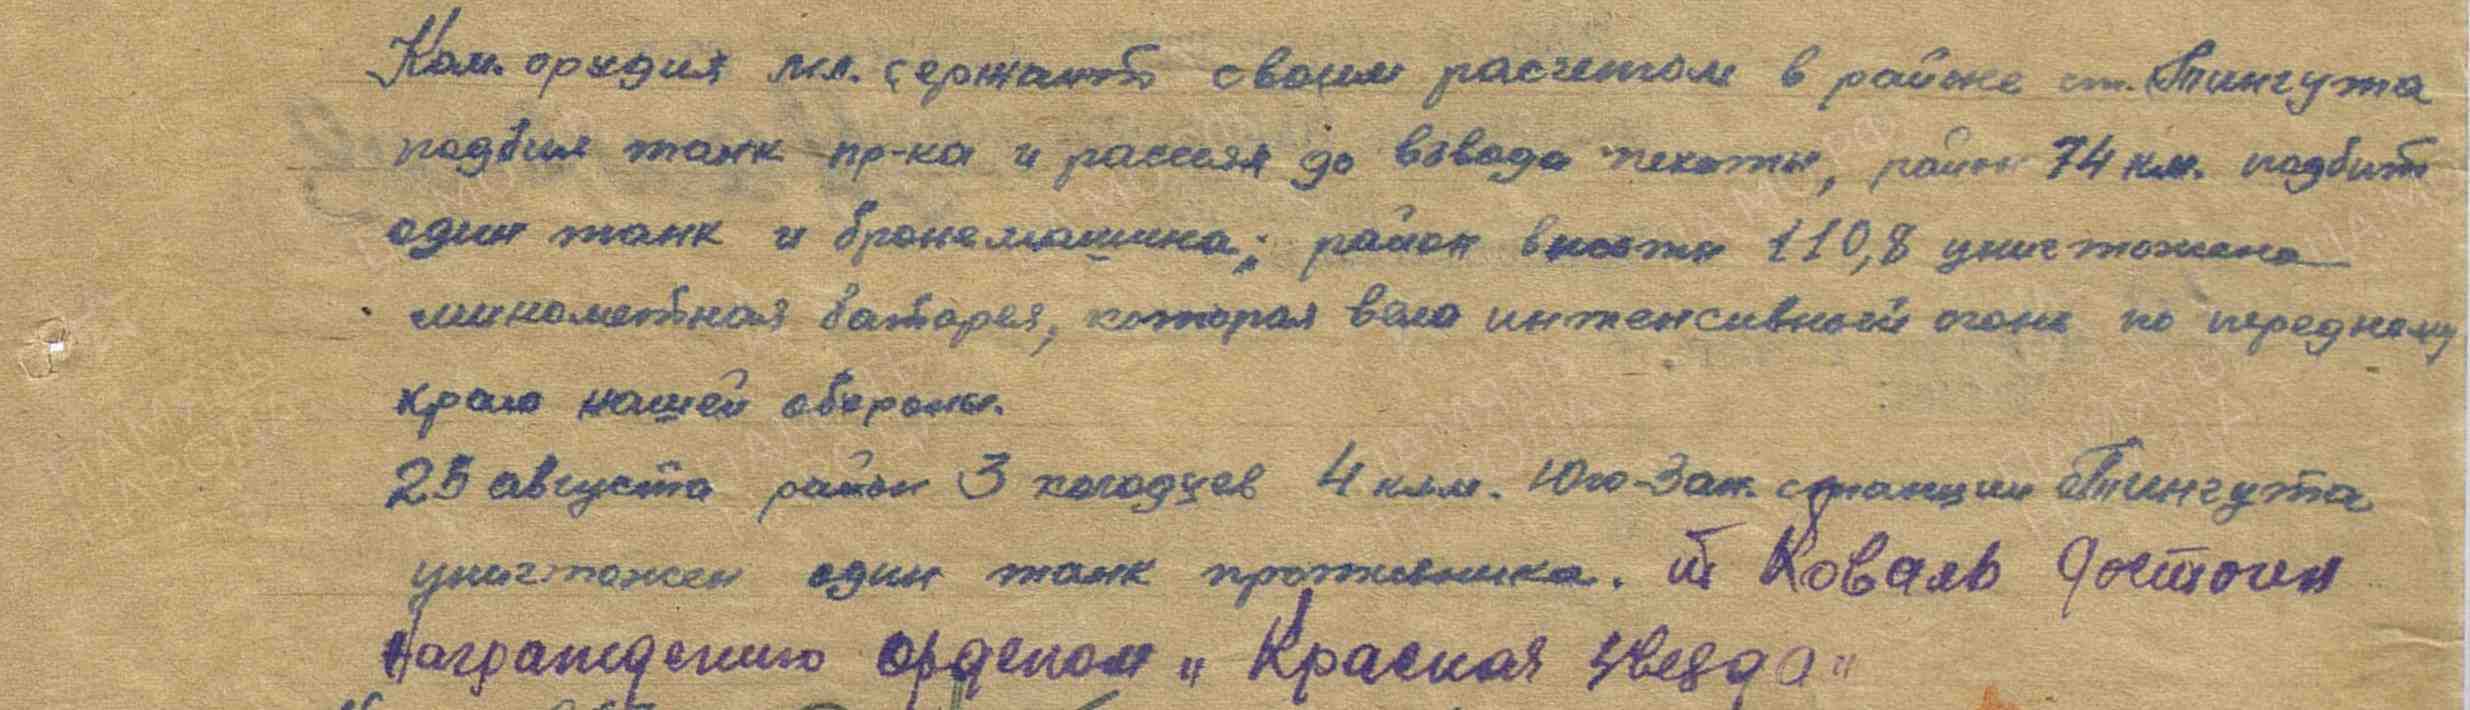 Ком. орудия мл. сержант своим расчетом в районе ст. Тингута
подбил танк пр-ка и рассеял до взвода пехоты, район 74 км. подбит
один танк и бронемашина; район высоты 110,8 уничтожена
минометная батарея, которая вела интенсивный огонь по переднему
краю нашей обороны.
25 августа район 3 колодцев 4 клм. Юго-Зап. станции Тингута
уничтожен один танк противника. т Коваль достоин
награждению орденом „Красная звезда"